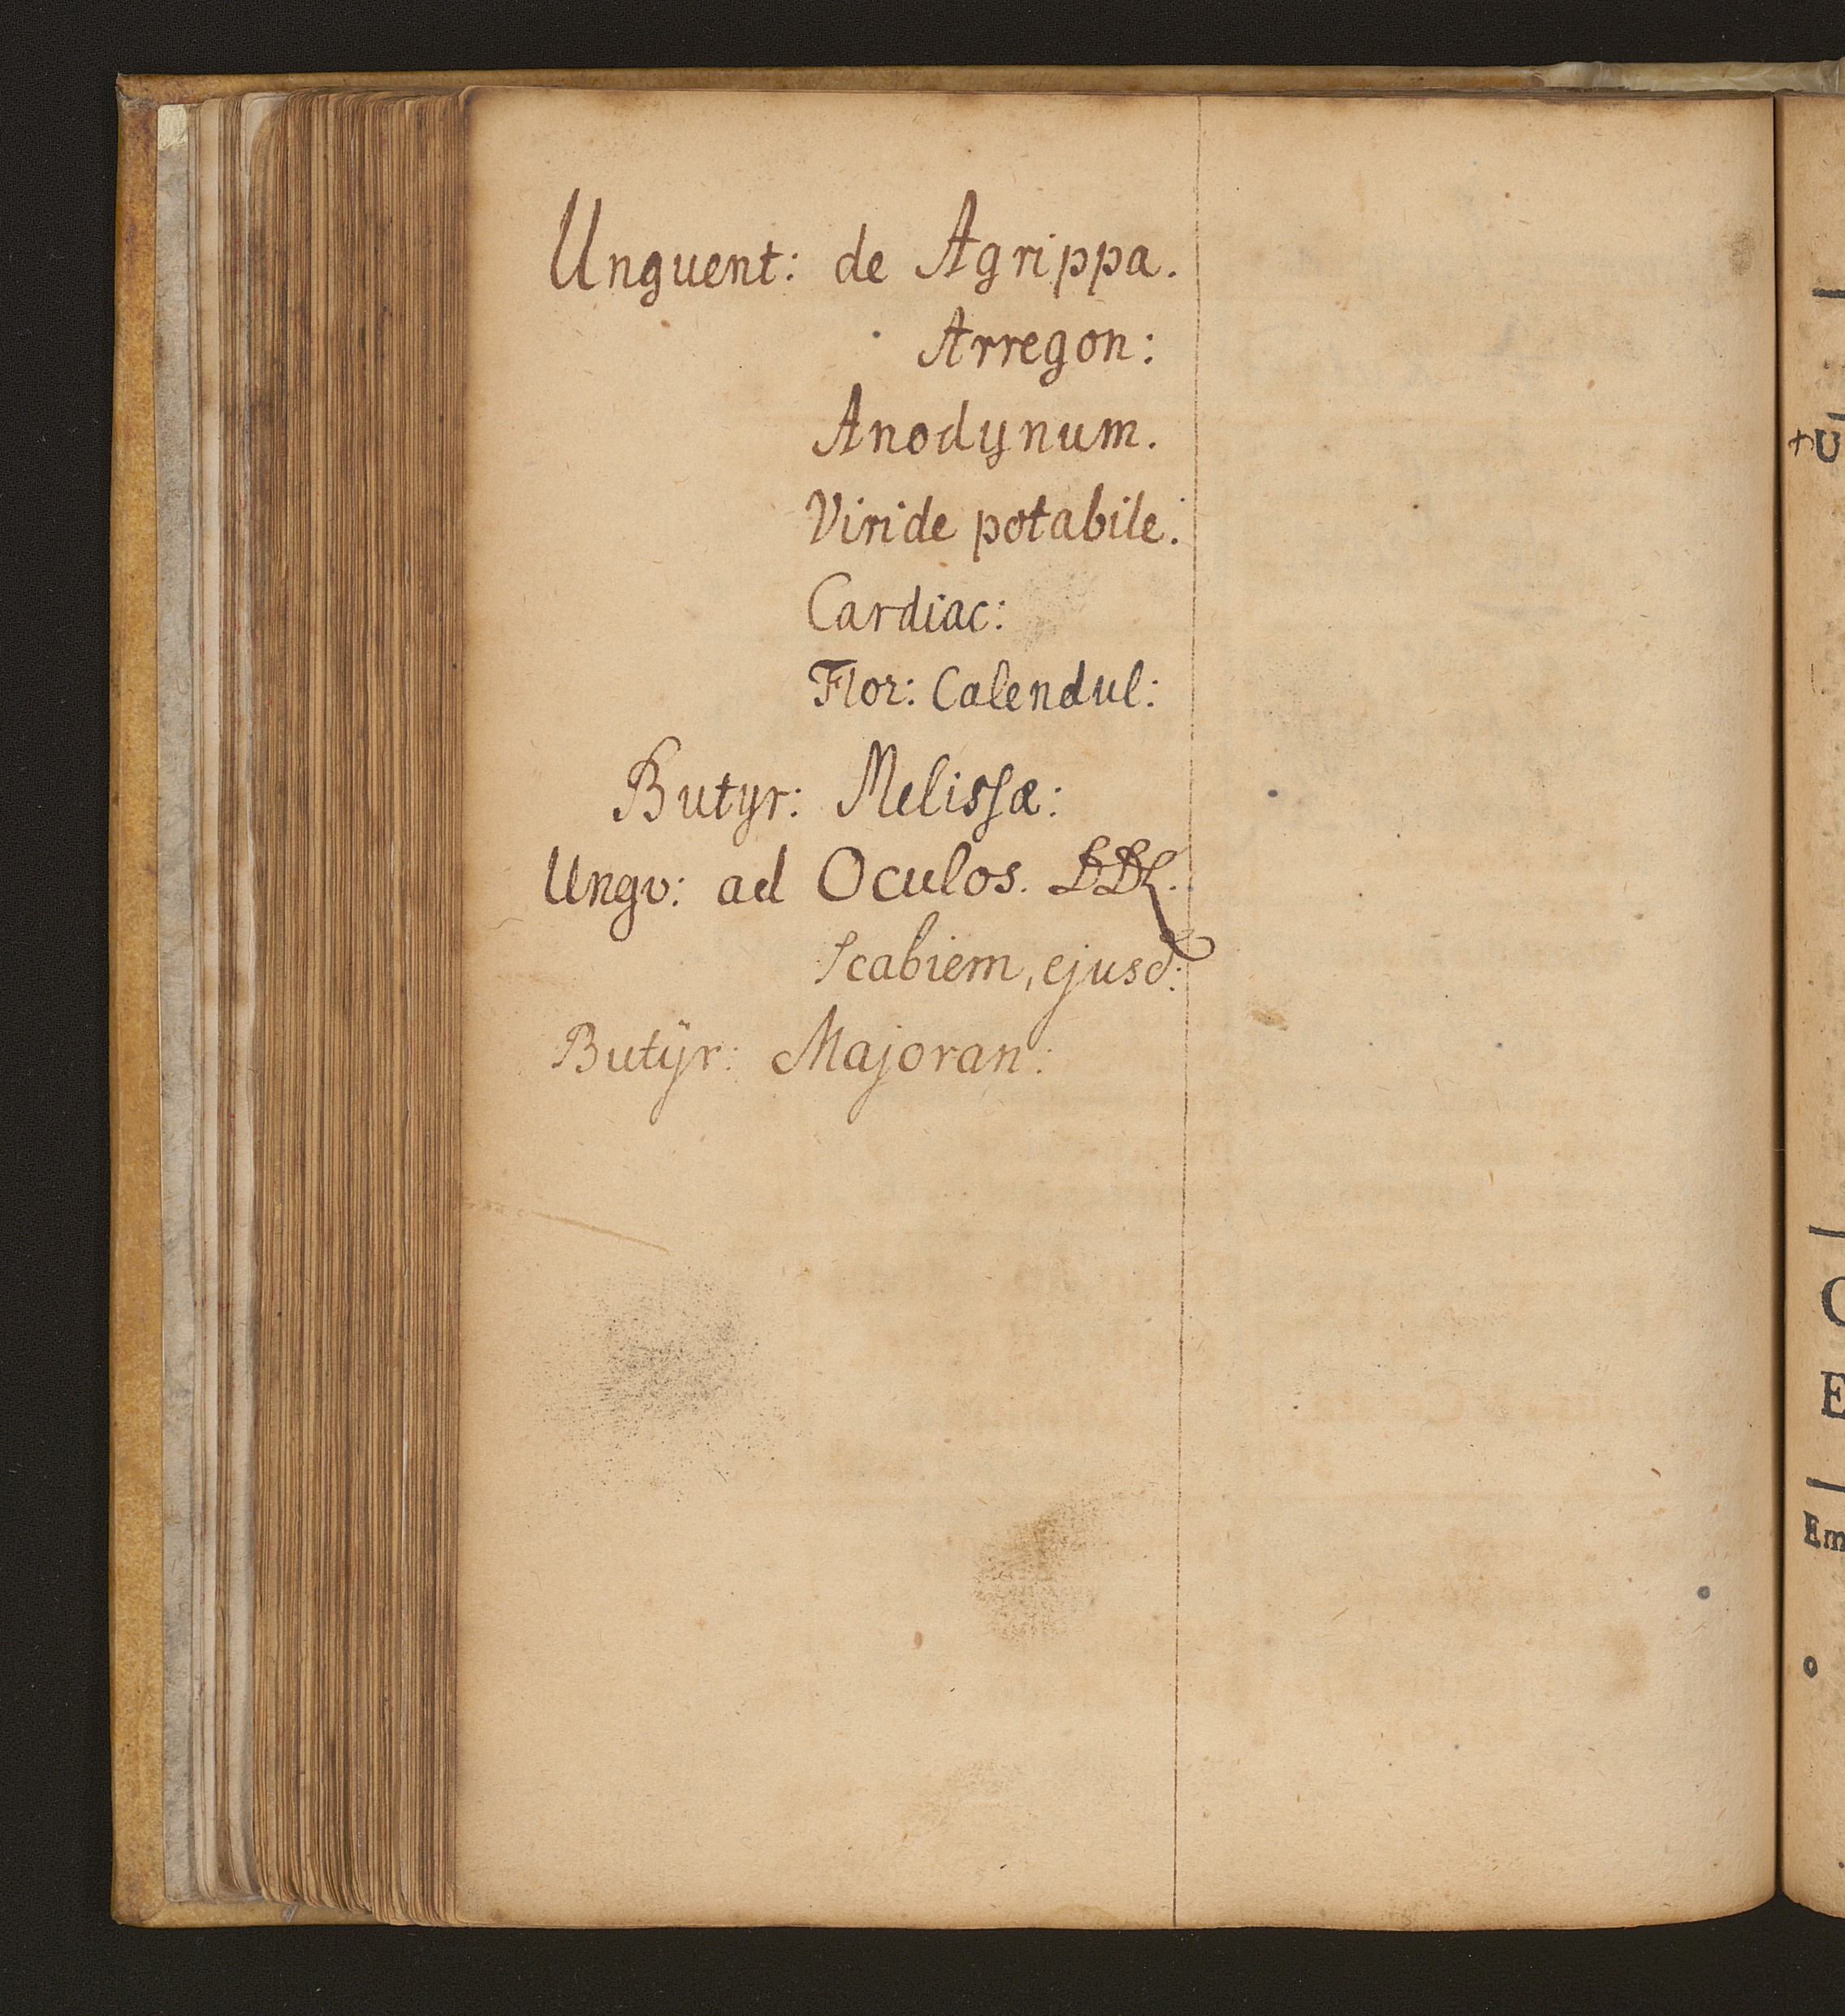 Unguent: de Agrippa.
Arregon:
Anodynum.
Viride potabile.
Cardiac:
Flor: Calendul:
Butyr: Melissæ:
Ungv: ad Oculos.
Scabiem, ejusd:
Butÿr: Majoran:
+U
C
E
Em